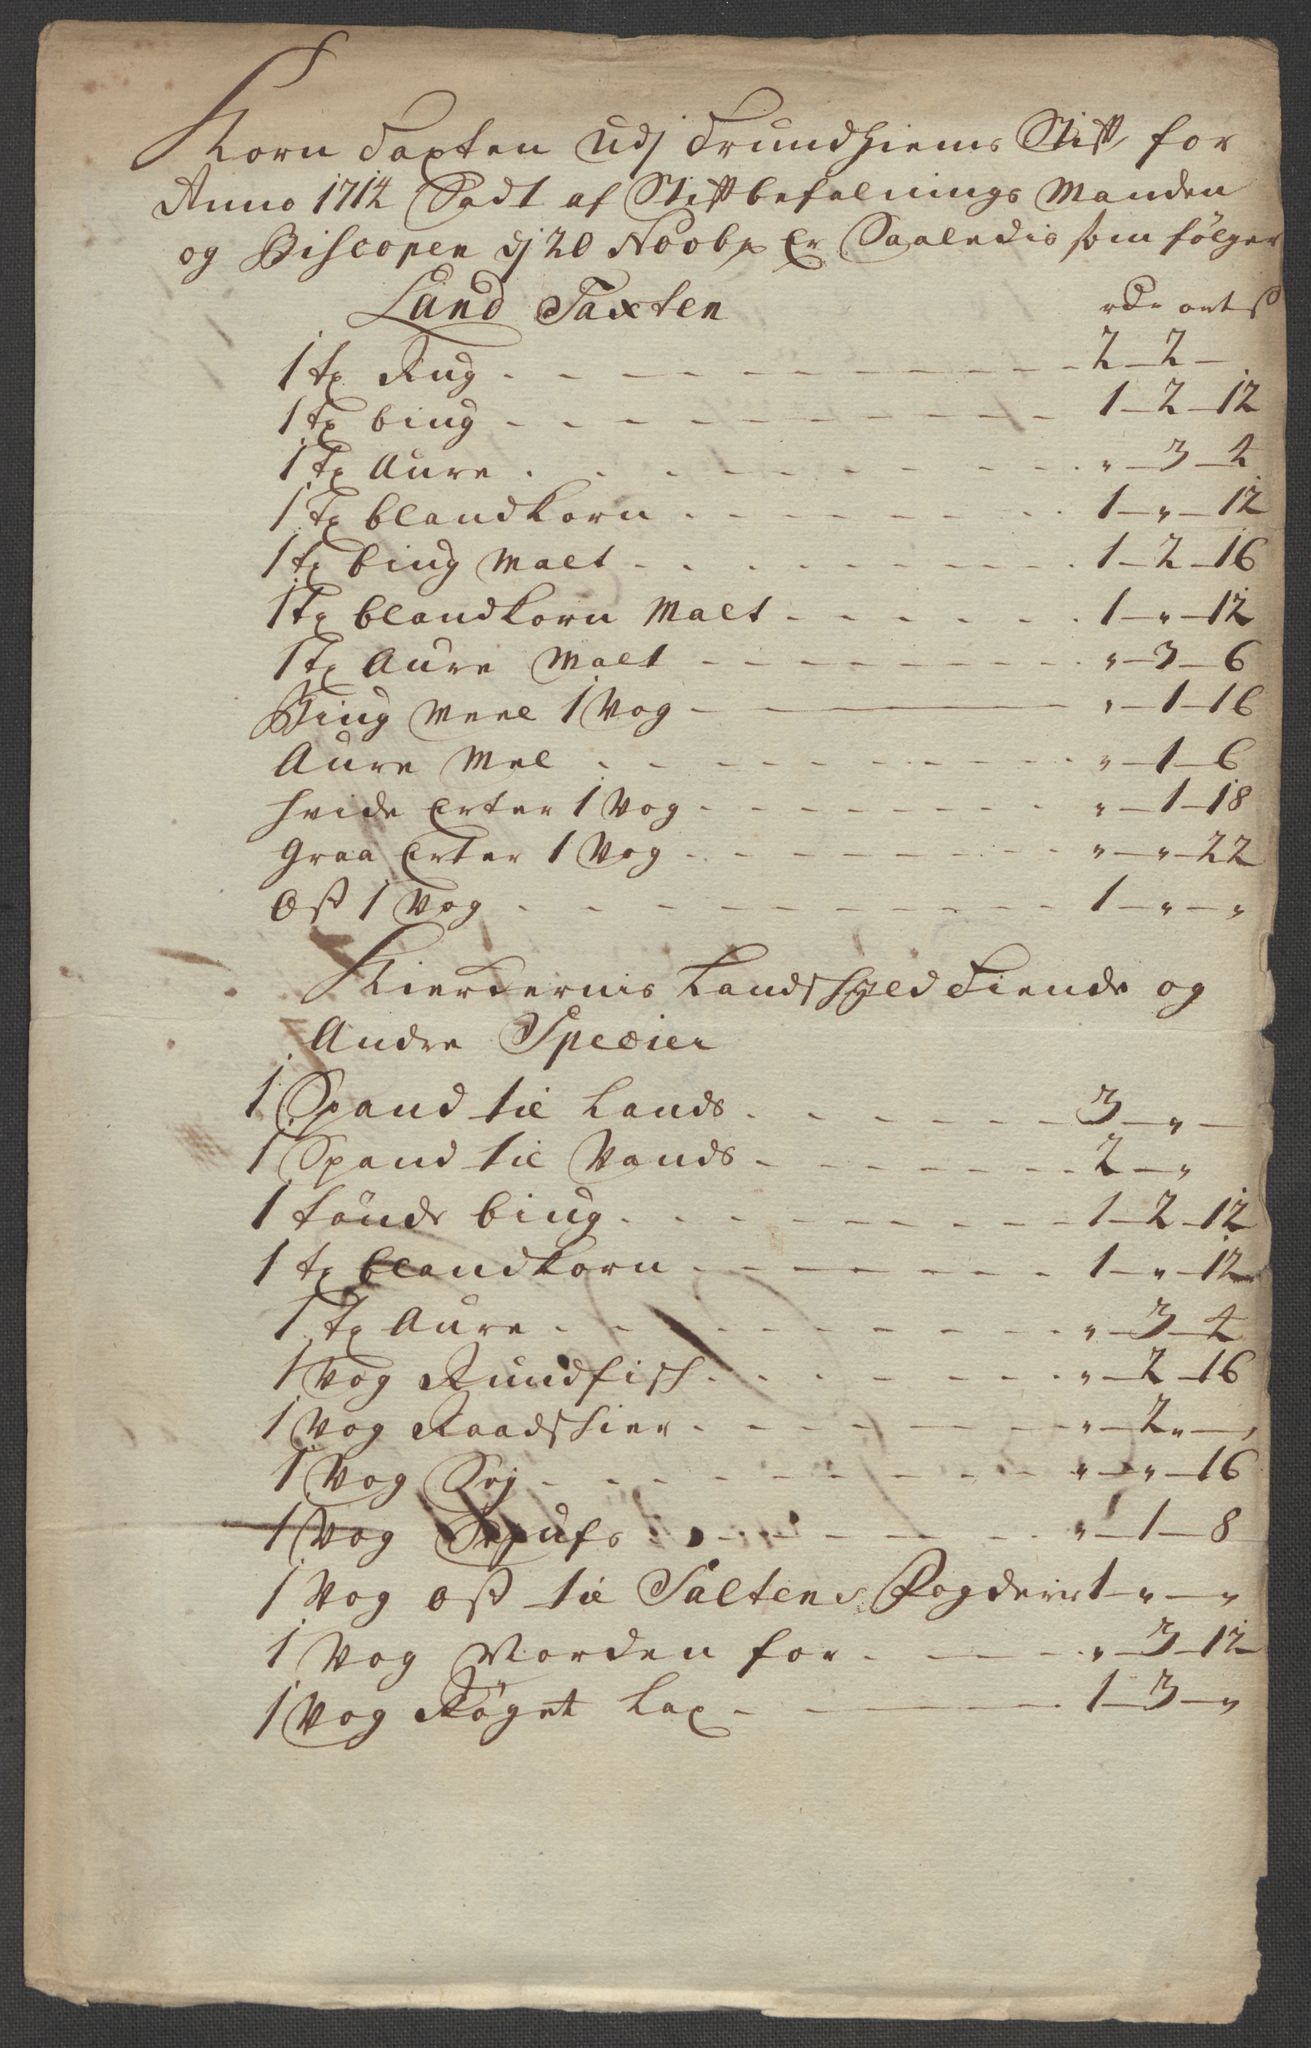 Korn Taxten udj Trundhiems Stift for
Anno 1714 Sadt af Stiftbefalnings Manden
og Biscopen dj 20 Novbr Er Saaledis som følger
Land Taxten rdr ort s
1 tr Rug - 2 - 2 -
1 tr biug - 1 - 2 - 12
1 tr Aure - " - 3 - 4
1 tr blandkorn - 1 - " - 12
1 tr biug Malt - 1 - 2 - 16
1 tr blandkorn Malt - 1 - " - 12
1 tr Aure Malt - " - 3 - 6
Biug Meel 1 Vog - " - 1 - 16
Aure Mel - " - 1 - 6
hvide Erter 1 Vog - " - 1 - 18
Graa Erter 1 Vog - " - " - 22
Ost 1 Vog - 1 - " - "
Kierkernis Landschyld Tiende og
Andre Specier
1 Spand til Lands - 3 - " -
1 Spand til Vands - 2 - "
1 tønde biug - 1 - 2 - 12
1 tr blandkorn - 1 - " - 12
1 tr Aure - " - 3 - 4
1 Vog Rundfisch - " - 2 - 16
1 Vog Raadschier - " - 2 - " -
1 Vog Sej - " - " - 16
1 Vog - " - 1 - 8
1 Vog Ost til Saltens Fogderie 1 - " - "
1 Vog Norden for - " - 3 - 12
1 Vog Røget Lax - 1 - 3 - "